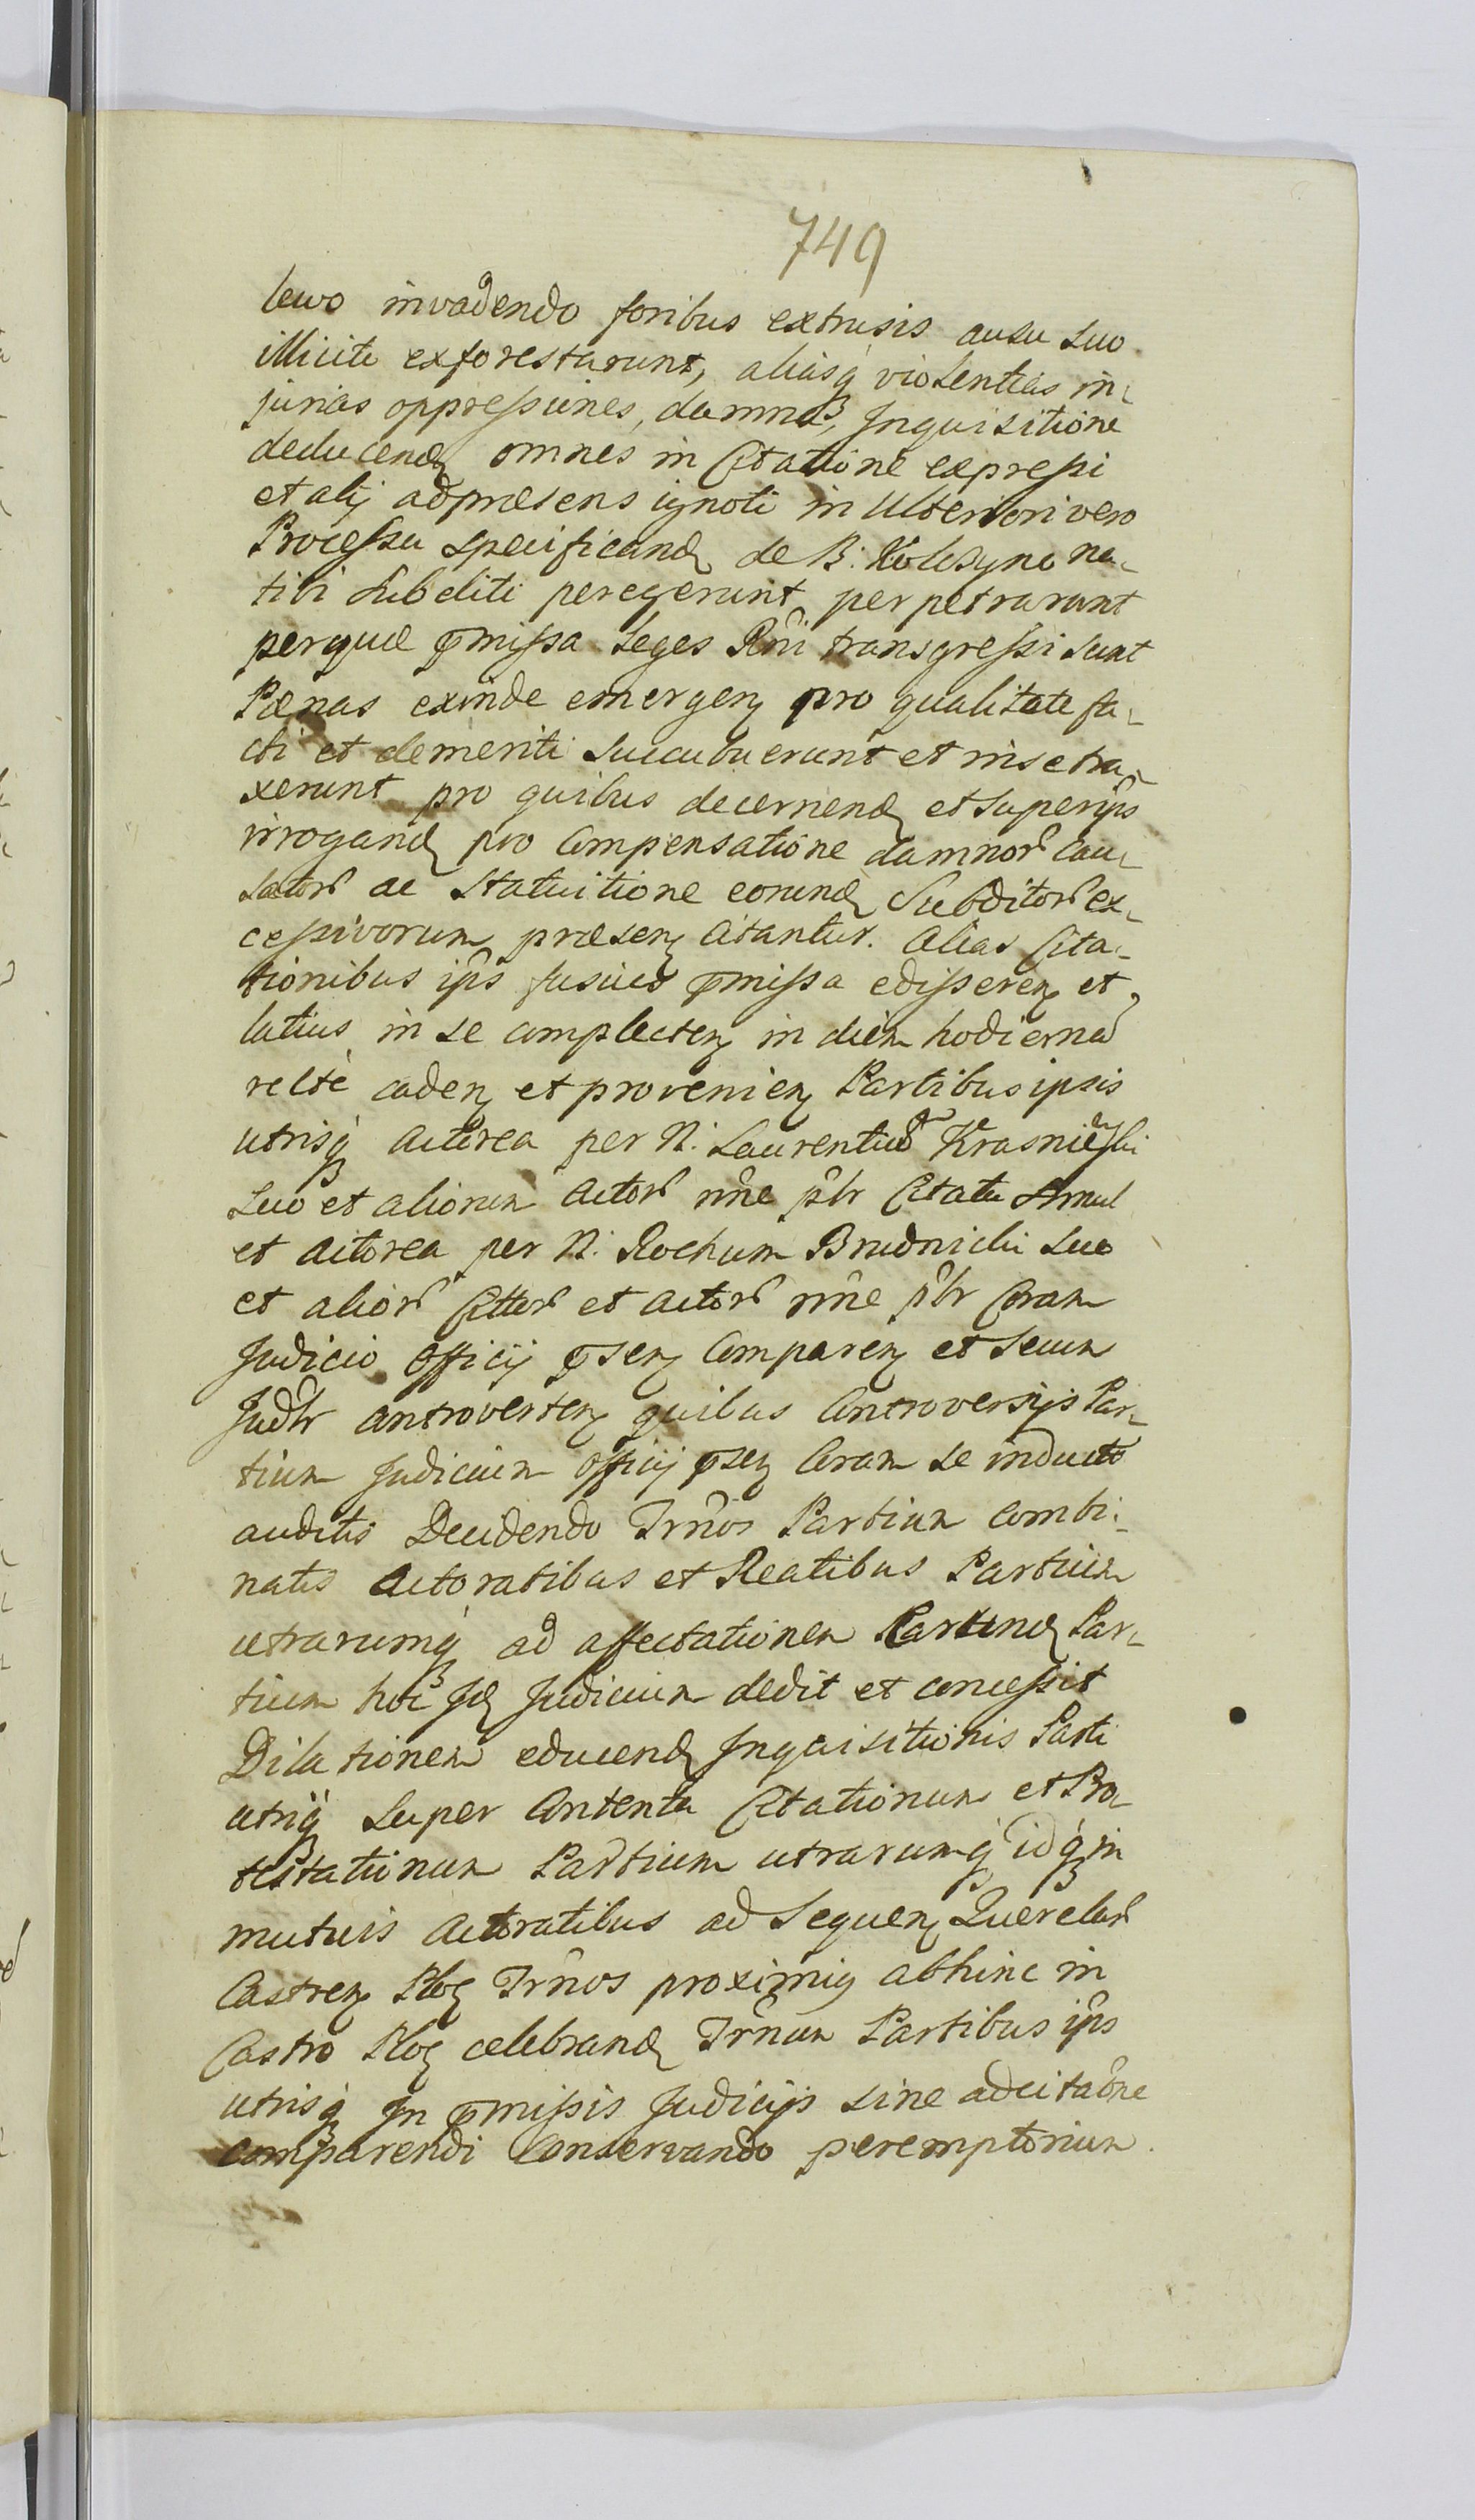 749
lewo invadendo foribus extrusis ausu suo
illicite exforestarunt, aliasq violentias in-
jurias oppressiones, damna, Inquisitione
deducend omnes in Citatione expressi
et alij adpræsens ignoti in Ulteriori vero
Processu specificand de B. Kolesyno na-
tivi Subditi peregerunt perpetrarunt
perquæ pmissa Leges Rni transgressi sunt
Pænas exinde emergen pro qualitate fa-
cti et demeriti succubuerunt et in se tra-
xerunt pro quibus decernend et super ipis
irrogand pro Compensatione damnor cau-
sator ac Statuitione eorund Subditor ex-
cessivorum præsen Citantur. Alias Cita-
tionibus ipis fusius pmissa edisseren et
latius in se complecten in diem hodierna
relte caden et provenien Partibus ipsis
utrisq Actorea per N. Laurentiu Krasnieski
Suo et aliorum Actor nne plr Citata Simul
et Actorea per N. Rochum Brudnicki Suo
et alior Citter et Actor nne plr Coram
Judicio Officij psen Comparen et Secum
Judlr Controverten quibus Controversijs Par-
tium Judicium Officij psen Coram se inducto
auditis Decidendo Trnos Partium combi-
natis Actoratibus et Reatibus Partium
utrarumq ad affectationem Earund Par-
tium hoc Id Judicium dedit et concessit
Dilationem educend Inquisitionis Parti
utriq Super Contenta Citationum et Pro-
testationum Partium utrarumq idq in
mutuis Actoratibus ad Sequen Querelar
Castren Ploc Trnos proximiq abhinc in
Castro Ploc celebrand Trnum Partibus ipis
utrisq In pmissis Judicijs sine adcitaone
comparendi Conservando peremptorium.